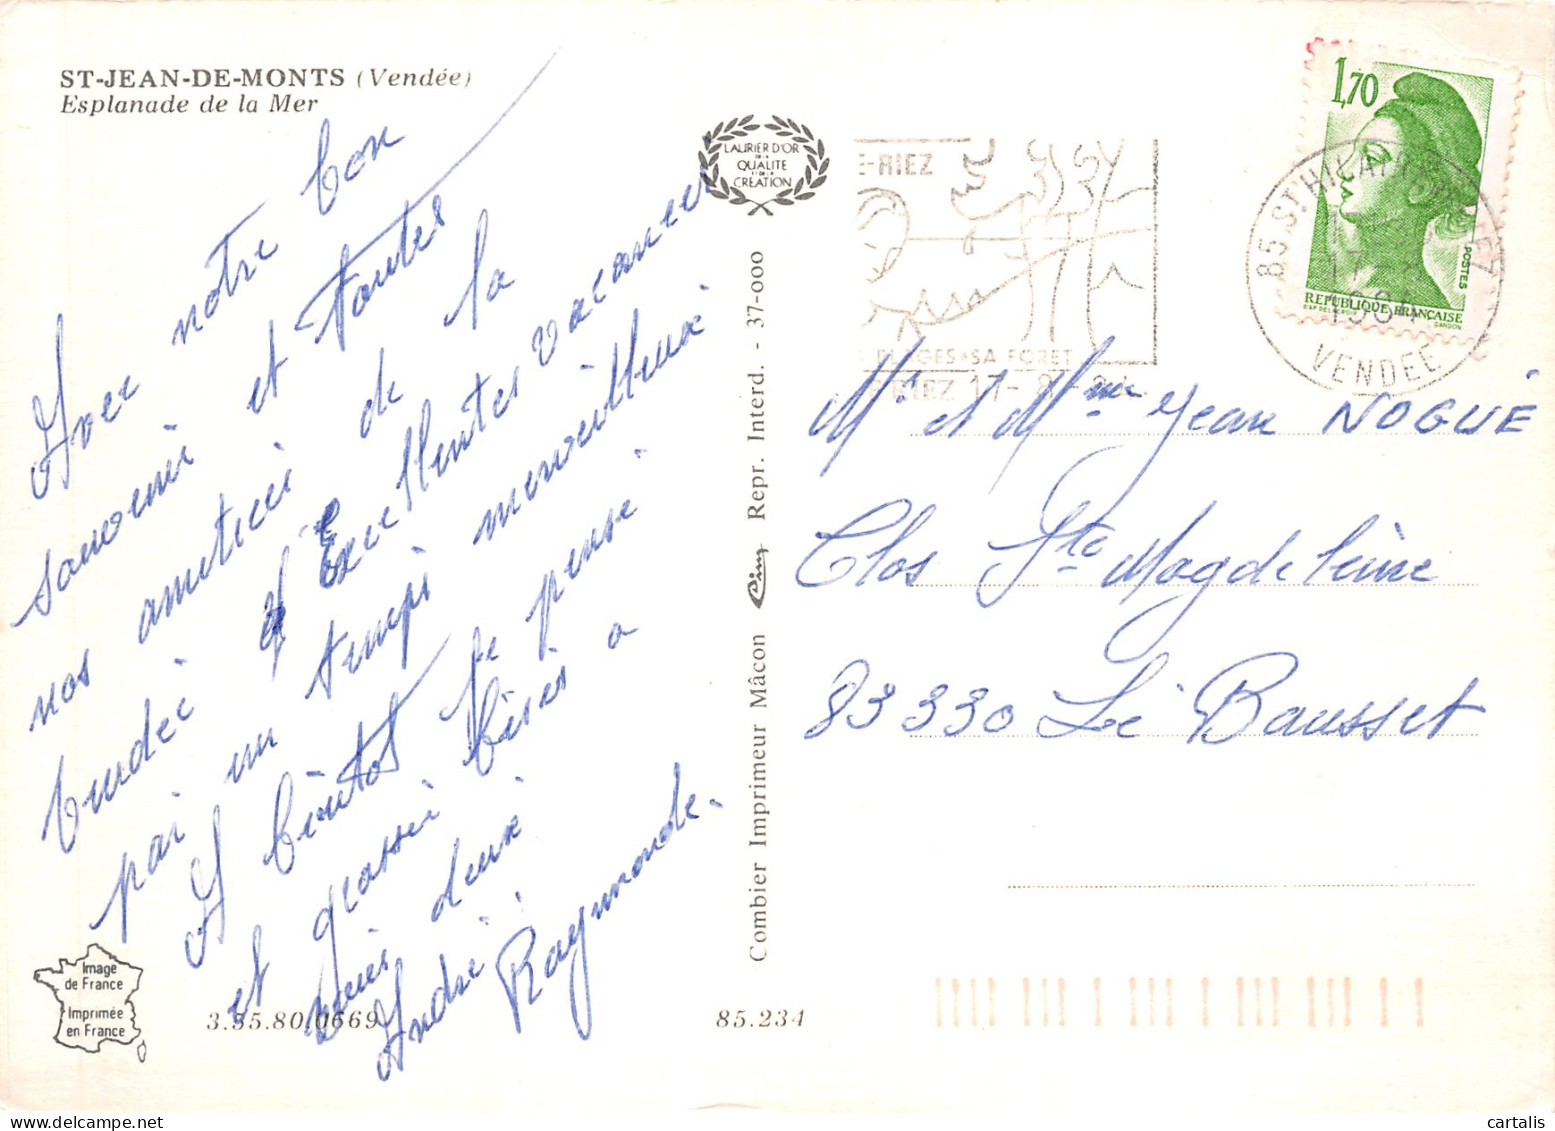 ST-JEAN-DE-MONTS (Vendée)
Esplanade de la Mer
Avec notre bon
souvenir et toutes
nos amitiés de la
Vendée
Excellentes vacances
par un temps merveilleux
A bientôt je pense
et grosses bises à
vous deux
André Raymonde.
Image
de France
Imprimée
en France
3.85.80.0669
85.234
LAURIER D'OR
DE LA
QUALITE
ET DE LA
CREATION
Combier Imprimeur Mâcon Cim Repr. Interd. - 37-000
E-RIEZ
PLAGES • SA FORET
RIEZ 17-8-
1,70
POSTES
REPUBLIQUE FRANÇAISE
GANDON
85 ST HILAIRE
17-8
1984
VENDEE
Mr et Mme Jean NOGUÉ
Clos Ste Magdeleine
83330 Le Bausset
cartalis